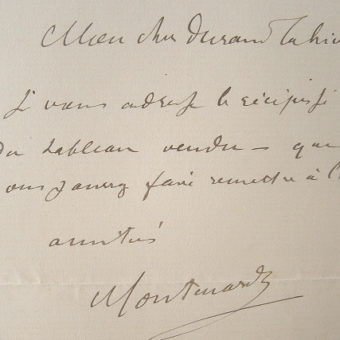 Mon cher Durand Tahier
Je vous adresse le récipissé
du tableau vendu – que
vous pourrez faire remettre à l'
amitiés
Montenard